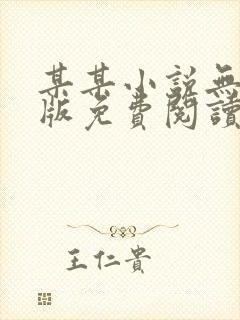 某某小说無
版免費閱讀
王仁貴